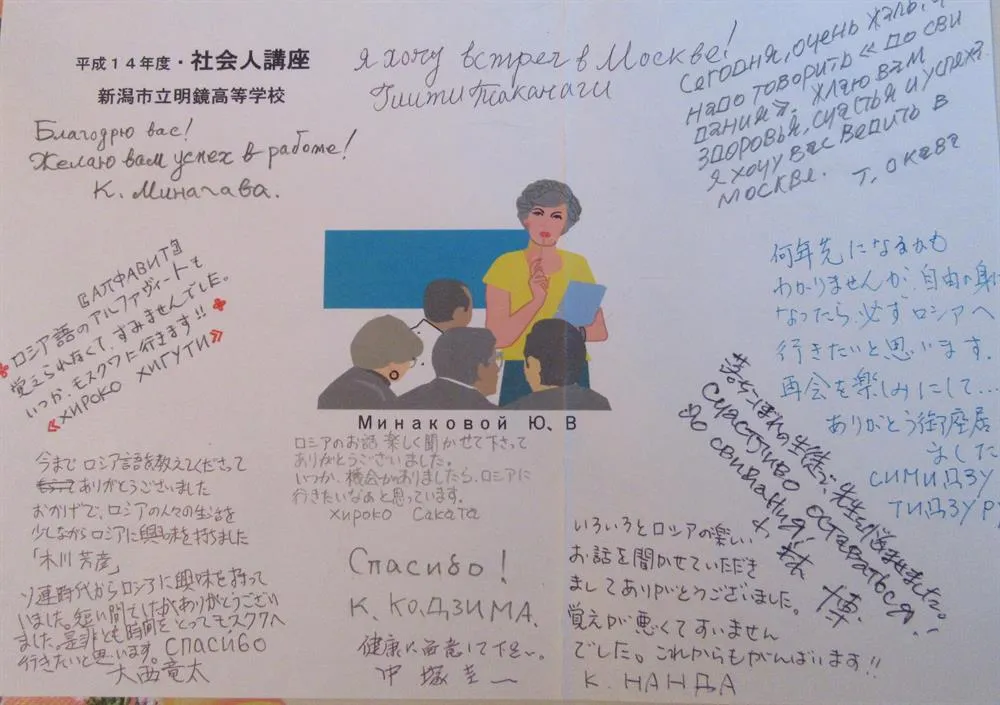 平成14年度・社会人講座
新潟市立明鏡高等学校
Благодрю вас!
Желаю вам успех в работе!
К. Минагава.
я хочу встреч в Москве!
Гиити Таканаги
Сегодня, очень жаль, ч
надо товорить «До сви
дания». Жлаю вам
здоровья, счастья и успеха.
я хочу вас ведить в
москве.
Т. Окава
〖АПФАВИТ〗
ロシア語のアルファヴィートも
覚えられなくて、すみませんでした。
いつか、モスクワに行きます!!
《ХИРОКО ХИГУТИ》
何年先になるかも
わかりませんが、自由の身に
なったら、必ずロシアへ
行きたいと思います。
再会を楽しみにして…
ありがとう御座居
ました
СИМИДЗУ
ТИДЗУР
Минаковой Ю、В
ロシアのお話 楽しく聞かせて下さって
ありがとうございました。
いつか、機会がありましたら、ロシアに
行きたいなあと思っています。
Хироко Саката
落ちこぼれの生徒で、先生を悩ませました。
Счастливо оставаться!
До свидания!
博
今まで ロシア語を教えてくださって
ありがとうございました
おかげで、ロシアの人々の生活を
少しながらロシアに興味を持ちました
「木川 芳彦」
ソ連時代からロシアに興味を持って
いました。短い間でしたがありがとうござい
ました。是非とも時間をとってモスクワへ
行きたいと思います。Спасибо
大西竜太
Спасибо!
К. КОДЗИМА.
健康に留意して下さい。
中塚圭一
いろいろとロシアの楽しい
お話を聞かせていただき
ましてありがとうございました。
覚えが悪くてすいません
でした。これからもがんばいます!!
К. НАНДА